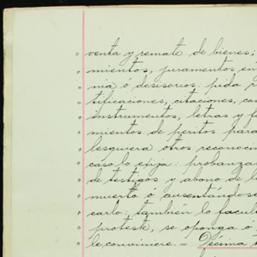 venta y remate de bienes;
mientos, juramentos en
ria ó desisorio: pida
tificaciones, citaciones, ca
instrumentos, letras y f
mientos de peritos para
lesquiera otros reconoci
caso lo exija: probanza
de testigos y abono de l
muerto ó ausentándose
carlo; también lo facul
proteste, se oponga ó
le convinere.- Décima